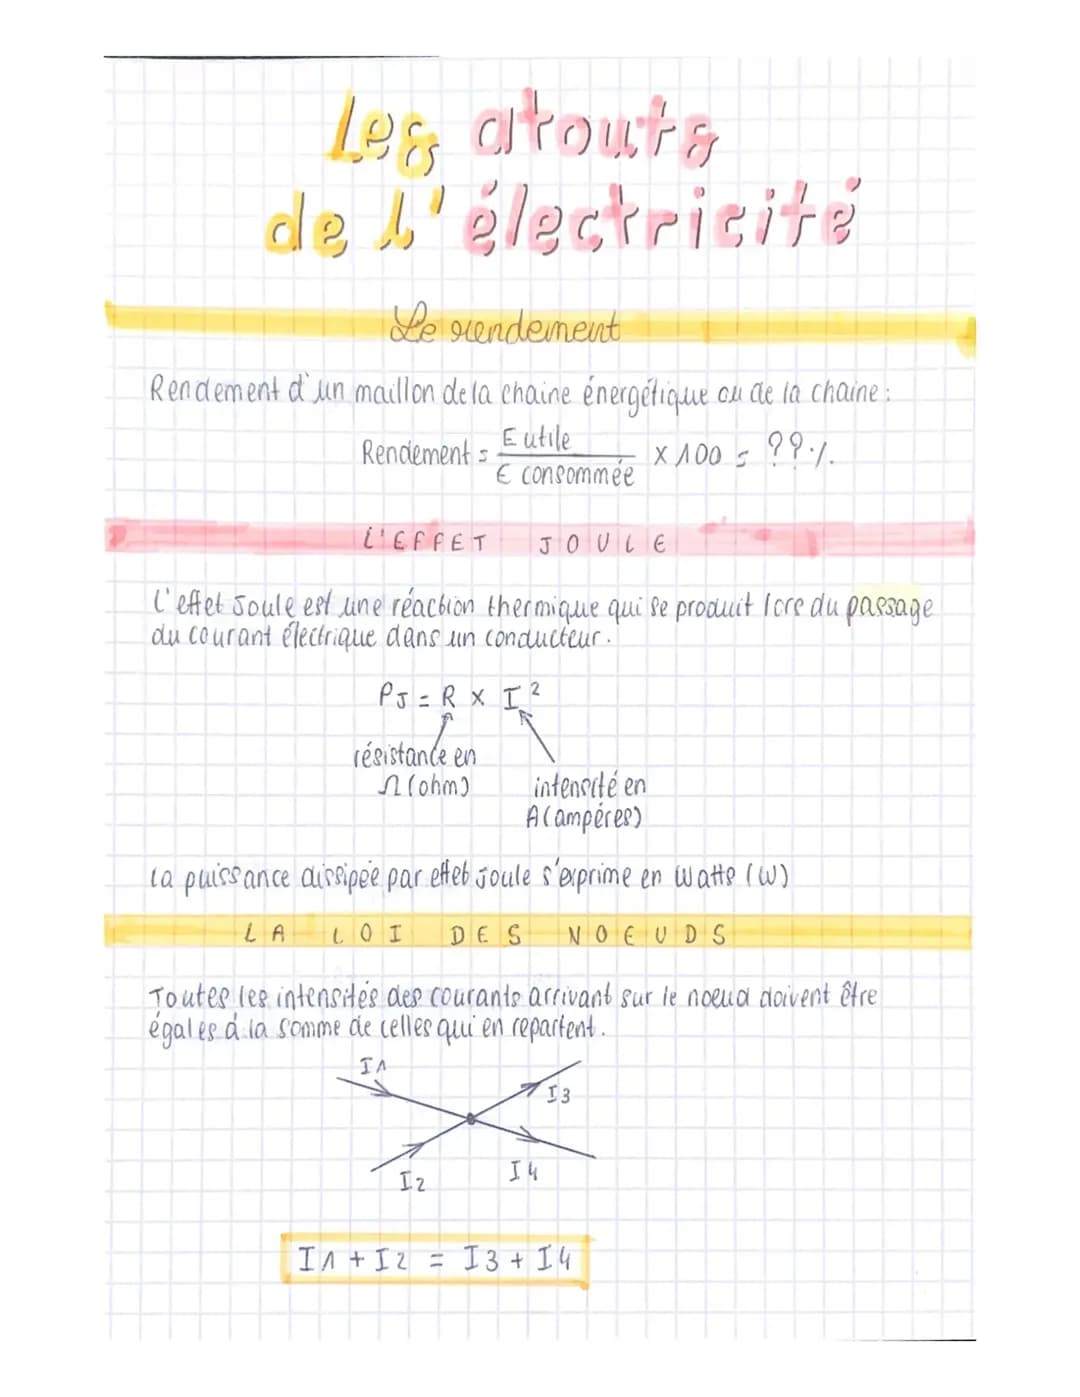 Les atouts
de l'électricité
Le rendement
Rendement d'un maillon de la chaine énergétique ou de la chaine :
Rendement = E utile / E consommée × 100 = ??%
L'EFFET JOULE
L'effet Joule est une réaction thermique qui se produit lors du passage
du courant électrique dans un conducteur.
PJ = R × I²
résistance en
Ω (ohm)
intensité en
A (ampères)
La puissance dissipée par effet Joule s'exprime en Watts (W)
LA LOI DES NOEUDS
Toutes les intensités des courants arrivant sur le noeud doivent être
égales à la somme de celles qui en repartent.
I1
I3
I2
I4
I1 + I2 = I3 + I4